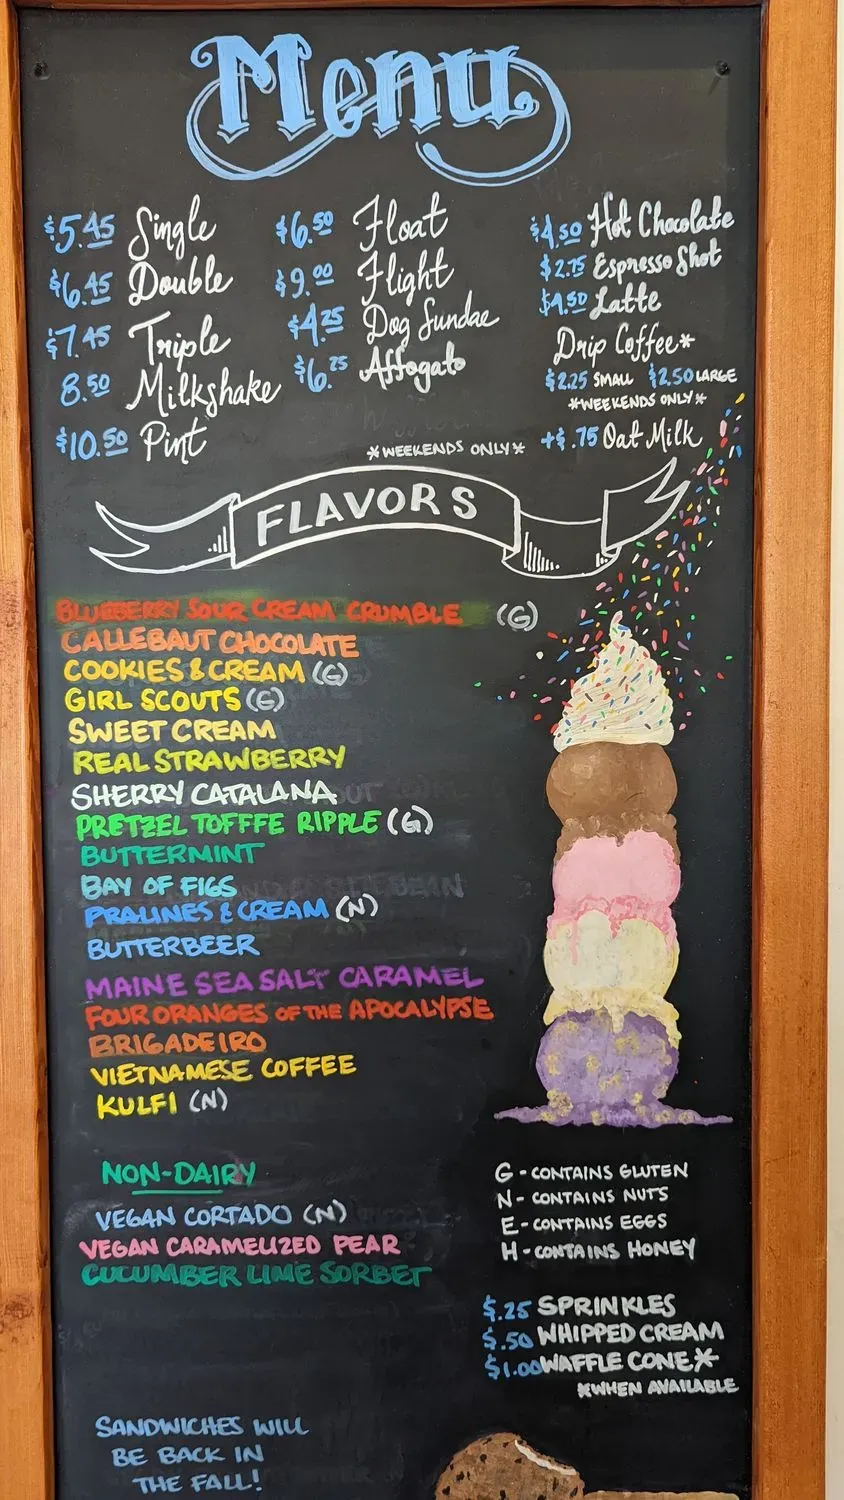 Menu
$5.45 Single
$6.45 Double
$7.45 Triple
8.50 Milkshake
$10.50 Pint
$6.50 Float
$9.00 Flight
$4.25 Dog Sundae
$6.25 Affogato
*WEEKENDS ONLY*
$4.50 Hot Chocolate
$2.75 Espresso Shot
$4.50 Latte
Drip Coffee*
$2.25 SMALL $2.50 LARGE
*WEEKENDS ONLY*
+$.75 Oat Milk
FLAVORS
BLUEBERRY SOUR CREAM CRUMBLE (G)
CALLEBAUT CHOCOLATE
COOKIES & CREAM (G)
GIRL SCOUTS (G)
SWEET CREAM
REAL STRAWBERRY
SHERRY CATALANA
PRETZEL TOFFFE RIPPLE (G)
BUTTERMINT
BAY OF FIGS
PRALINES & CREAM (N)
BUTTERBEER
MAINE SEA SALT CARAMEL
FOUR ORANGES OF THE APOCALYPSE
BRIGADEIRO
VIETNAMESE COFFEE
KULFI (N)
NON-DAIRY
VEGAN CORTADO (N)
VEGAN CARAMELIZED PEAR
CUCUMBER LIME SORBET
G - CONTAINS GLUTEN
N - CONTAINS NUTS
E - CONTAINS EGGS
H - CONTAINS HONEY
$.25 SPRINKLES
$.50 WHIPPED CREAM
$1.00 WAFFLE CONE*
*WHEN AVAILABLE
SANDWICHES WILL
BE BACK IN
THE FALL!